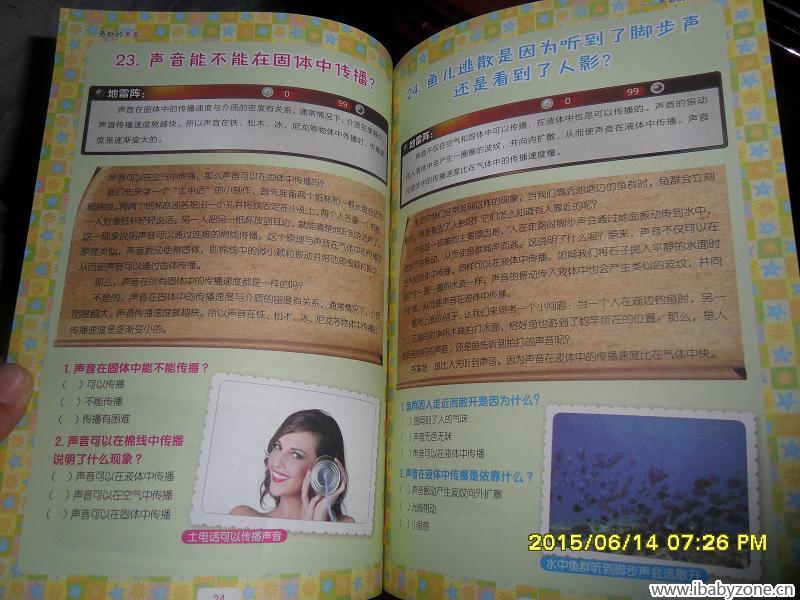 奇妙的声音
23. 声音能不能在固体中传播?
地雷阵:
0
99
声音在固体中的传播速度与介质的密度有关系,通常情况下,介质密度越大,
声音传播速度就越快。所以声音在铁、松木、冰、尼龙等物体中传播时,传播速
度是逐渐变大的。
声音可以在空气中传播,那么声音可以在固体中传播吗?
我们先来学一个“土电话”的小制作,首先准备两个纸杯和一根长度合适的
粗棉线,将两个纸杯底部各挖出一小孔并将线固定在小孔上,两个人各拿一个纸杯,
一人对着纸杯轻轻说话,另一人把另一纸杯放到耳边,就能清楚地听到说话声了。
这一现象说明声音可以通过连接的棉线传播。这个原理与声音在气体中传播的
原理类似,声音振动使得固体,即棉线中的微小颗粒振动并带动周围颗粒振动,
从而使声音可以通过固体传播。
那么,声音在所有固体中的传播速度都是一样的吗?
不是的,声音在固体中的传播速度与介质的密度有关系,通常情况下,介质
密度越大,声音传播速度就越快。所以声音在铁、松木、冰、尼龙等物体中传播时
传播速度是逐渐变小的。
1. 声音在固体中能不能传播?
( )可以传播
( )不能传播
( )传播有困难
2. 声音可以在棉线中传播
说明了什么现象?
( )声音可以在液体中传播
( )声音可以在空气中传播
( )声音可以在固体中传播
土电话可以传播声音
24
24. 鱼儿逃散是因为听到了脚步声
还是看到了人影?
地雷阵:
0
99
声音不仅在空气和固体中可以传播,在液体中也是可以传播的。声音的振动
传入液体中会产生一圈圈的波纹,并向内扩散,从而使声音在液体中传播。声音
在液体中的传播速度比在气体中的传播速度慢。
生活中我们经常发现这样的现象,当我们靠近池塘边的鱼群时,鱼群会立刻
是看到了人影吗?它们怎么知道有人靠近的呢?
产生这一现象的主要原因是,人在走路时脚步声会通过地面振动传到水中,
产生振动,从而使鱼群闻声而逃。这说明了什么呢?原来,声音不仅可以在
气体和固体中传播,同样可以在液体中传播。如同我们将石子掷入平静的水面时
产生一圈一圈的水波一样,声音的振动传入液体中也会产生类似的波纹,并向
扩散,从而使声音在液体中传播。
看完上面的例子,让我们来思考一个小问题:当一个人在湖边钓鱼时,另一
个人在湖的对岸用木棒拍打水面,恰好鱼也游到了钓竿所在的位置。那么,是人
先听到拍打的声音,还是鱼先听到拍打的声音呢?
答案是:鱼比人先听到声音。因为声音在液体中的传播速度比在气体中快。
1.鱼群因人走近而散开是因为什么?
( )鱼闻到了人的气味
( )声音无色无味
( )声音可以在液体中传播
2.声音在液体中传播是依靠什么?
( )声音振动产生波纹向外扩散
( )光线带动
( )小鱼带
水中鱼群听到脚步声会逃散开
2015/06/14 07:26 PM
www.ibabyzone.cn